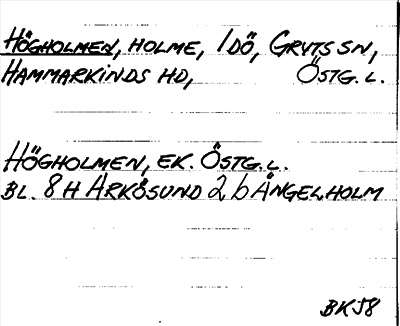 HÖGHOLMEN, HOLME, IDÖ, GRYTS SN,
HAMMARKINDS HD, ÖSTG. L.
HÖGHOLMEN, EK. ÖSTG. L.
BL. 8 H ARKÖSUND 2 b ÄNGELHOLM
BKJ8